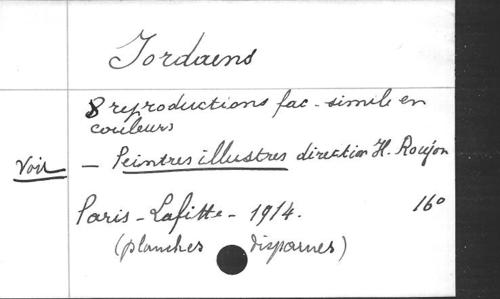 Jordaens
8 reproductions fac-simile en
couleurs
Voir — Peintres illustres direction H. Roujon
Paris - Lafitte - 1914. 16°
(planches disparues)